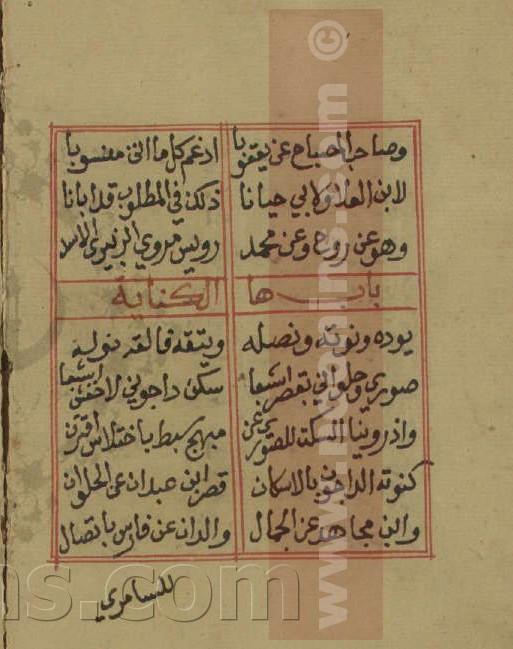 وصاحب المصباح عن يعقوبا ادغم كل ما اتى منسوبا
لابن العلا ولابي حيانا ذكره في المطلوب قد ابانا
وهو عن روح وعن محمد رويس مروي الزبيري
باب ها الكناية
يوده ونوته ونصله ويتقه فالقه نوله
صوري وحلواني بقصر اشبعا سكن داجوني لاخفش اشبعا
واذ روينا السكت للصوري عن مبهج سبط باختلاس اقترن
كنوته الداجون بالاسكان قصر ابن عبدان عن الحلوان
وابن مجاهد عن الجمال والدان عن فارس باتصال
للسامري
www.mns.com ©
ns.com